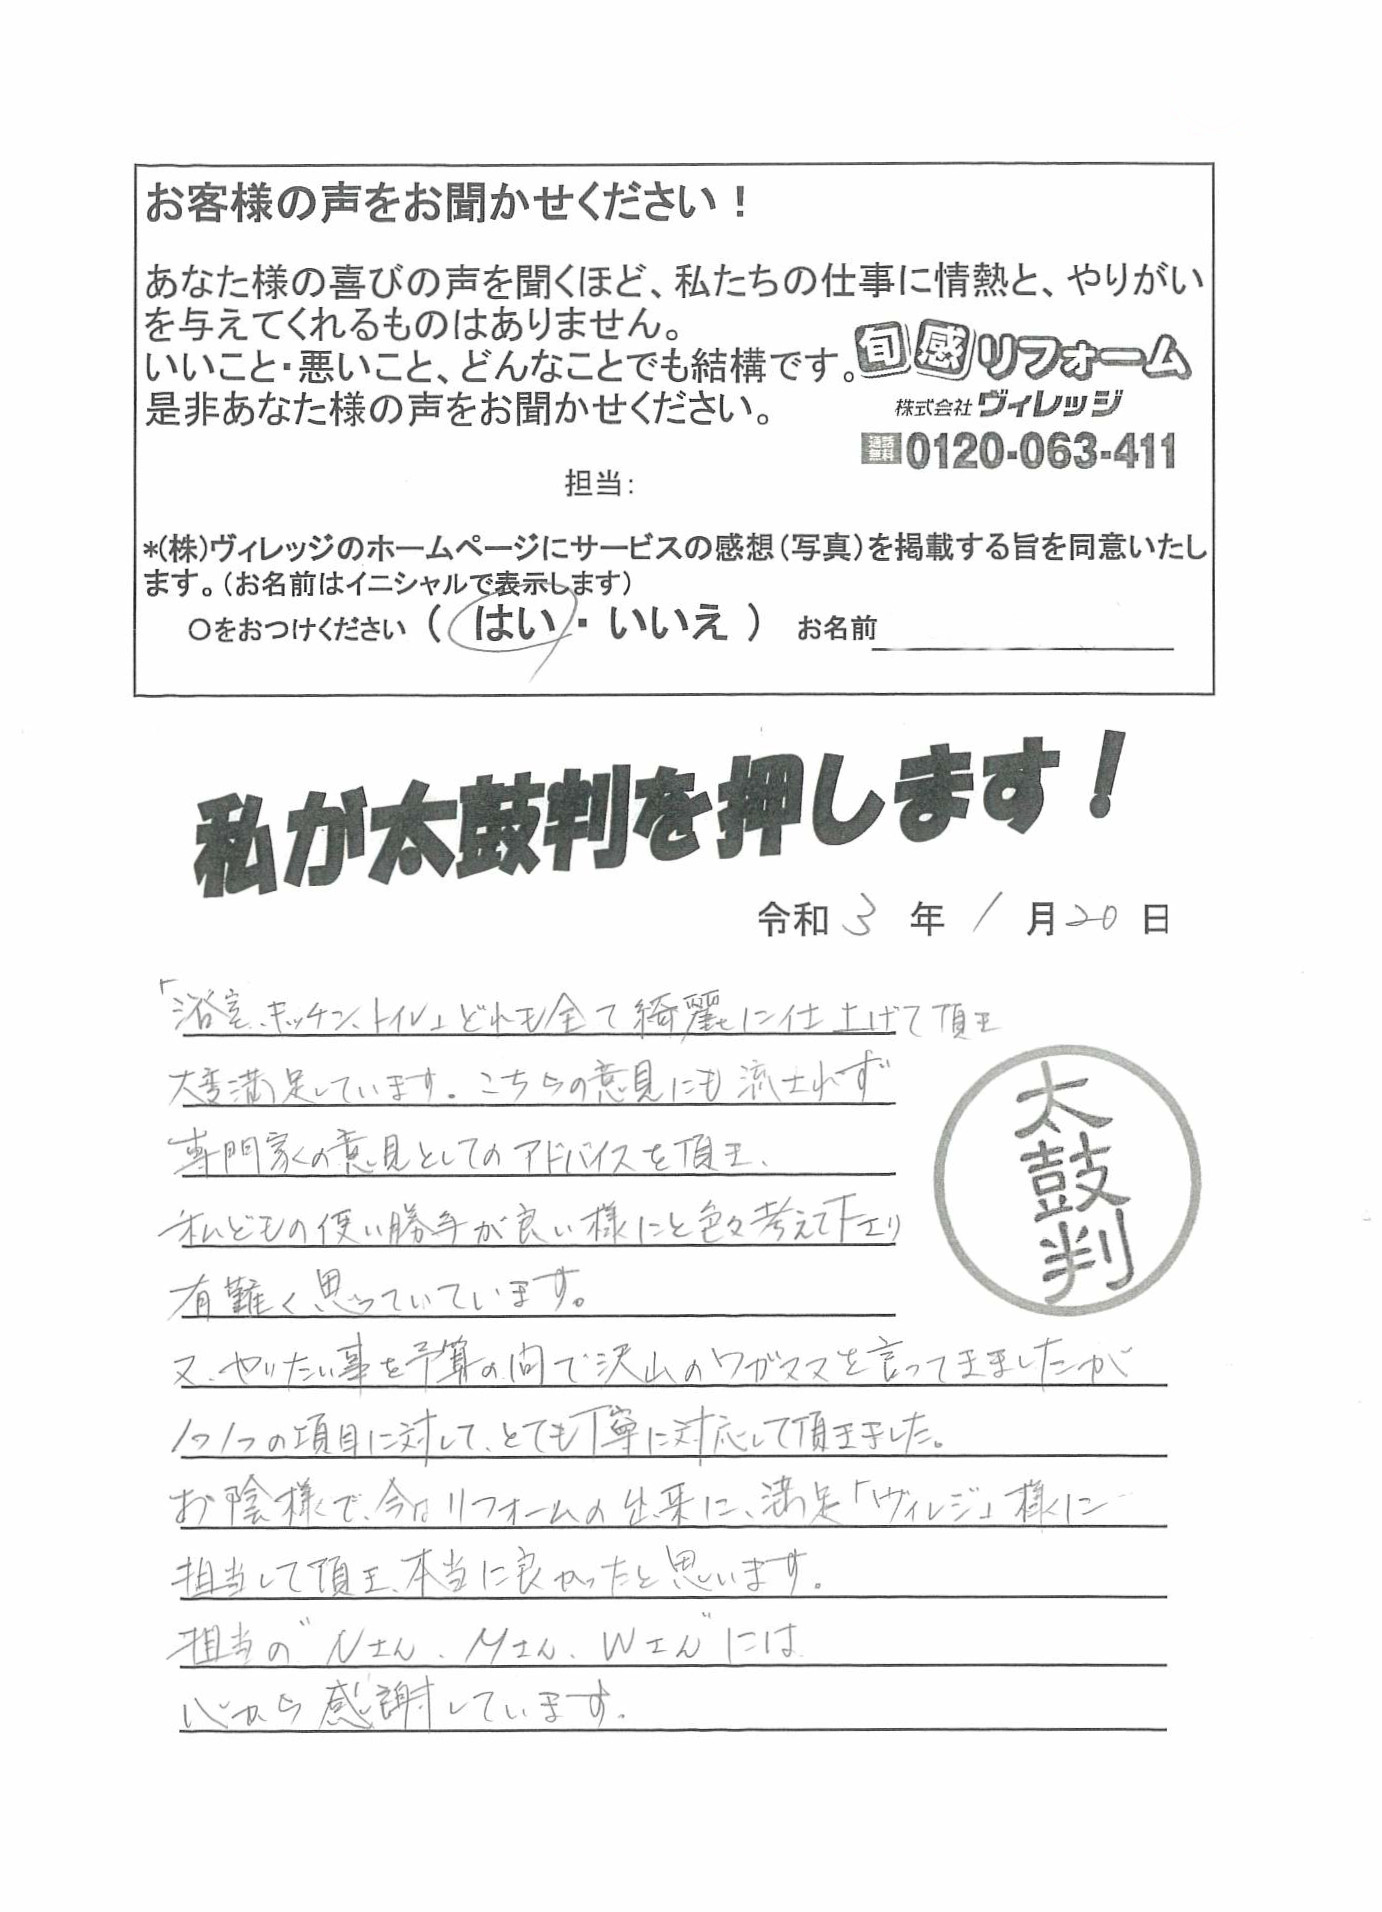 お客様の声をお聞かせください！
あなた様の喜びの声を聞くほど、私たちの仕事に情熱と、やりがい
を与えてくれるものはありません。
いいこと・悪いこと、どんなことでも結構です。
是非あなた様の声をお聞かせください。
旬感リフォーム
株式会社ヴィレッジ
通話無料 0120-063-411
担当：
*(株)ヴィレッジのホームページにサービスの感想(写真)を掲載する旨を同意いたし
ます。(お名前はイニシャルで表示します)
○をおつけください ( はい ・ いいえ ) お名前
私が太鼓判を押します！
令和 3 年 1 月 20 日
「浴室、キッチン、トイレ」どれも全て綺麗に仕上げて頂き
大変満足しています。こちらの意見にも流されず
専門家の意見としてのアドバイスを頂き、
私どもの使い勝手が良い様にと色々考えて下さり
有難く思っていています。
太鼓判
又、やりたい事を予算の間で沢山のワガママを言ってきましたが
1つ1つの項目に対して、とても丁寧に対応して頂きました。
お陰様で、今はリフォームの出来に、満足「ヴィレジ」様に
担当して頂き、本当に良かったと思います。
担当の"Nさん、Mさん、Wさん"には
心から感謝しています。